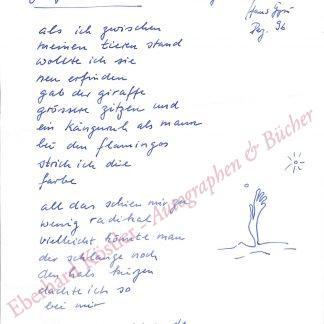 Hans Gysi
Dez. 96
als ich zwischen
meinen tieren stand
wollte ich sie
neu erfinden
gab der giraffe
grössere zitzen und
ein känguruh als mann
bei den flamingos
strich ich die
farbe
all das schien mir zu
wenig radikal
vielleicht könnte man
der schlange noch
den hals kürzen
dachte ich so
bei mir
Eberhard Köstler - Autographen & Bücher